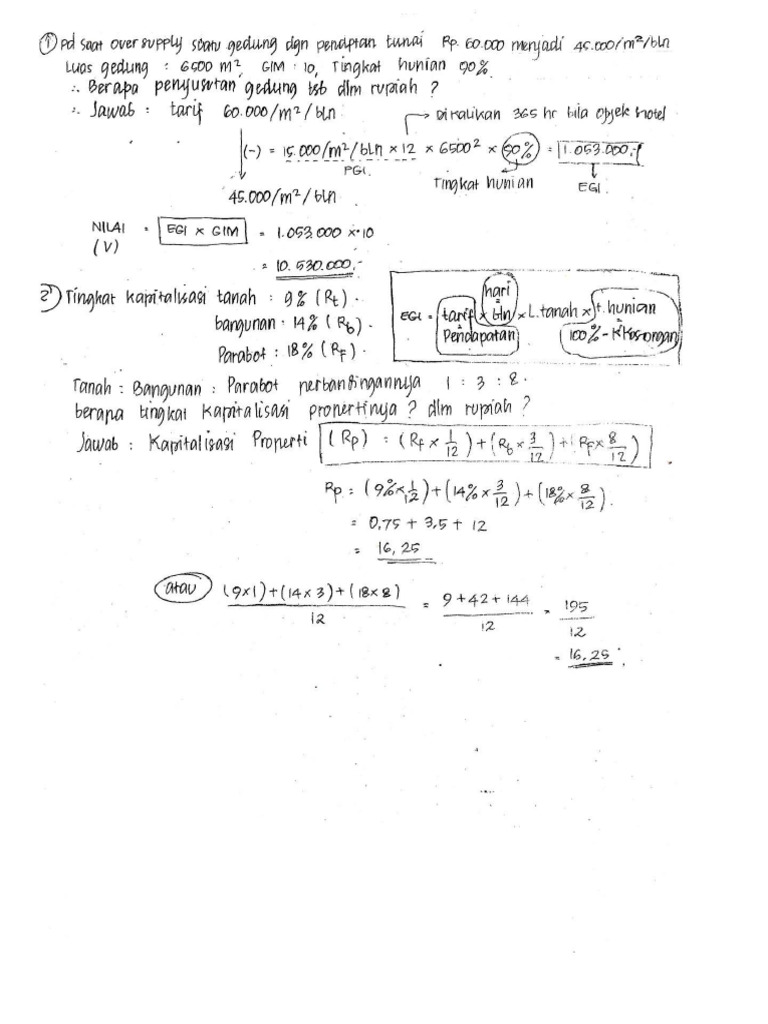 ① Pd saat over supply suatu gedung dgn pendptan tunai Rp. 60.000 menjadi 45.000/m²/bln
Luas gedung : 6500 m², GIM : 10, Tingkat hunian 90%.
∴ Berapa penyusutan gedung tsb dlm rupiah ?
∴ Jawab : tarif 60.000/m²/bln → Dikalikan 365 hr bila objek hotel
(-) = 15.000/m²/bln × 12 × 6500² × 90% = 1.053.000,-
PGI. Tingkat hunian EGI.
45.000/m²/bln
NILAI (V) = EGI × GIM = 1.053.000 × 10
= 10.530.000,-
2) Tingkat kapitalisasi tanah : 9% (Rt).
bangunan : 14% (Rb).
Parabot : 18% (RF).
EGI = tarif × bln × L.tanah × t.hunian
hari
Pendapatan
100% - Kekosongan
Tanah : Bangunan : Parabot perbandingannya 1 : 3 : 8.
berapa tingkat kapitalisasi propertinya ? dlm rupiah ?
Jawab : Kapitalisasi Properti (Rp) = (RF × 1/12) + (Rb × 3/12) + (RF × 8/12)
Rp = (9% × 1/12) + (14% × 3/12) + (18% × 8/12).
= 0,75 + 3,5 + 12
= 16,25
atau (9×1)+(14×3)+(18×8) / 12 = 9+42+144 / 12 = 195 / 12
= 16,25